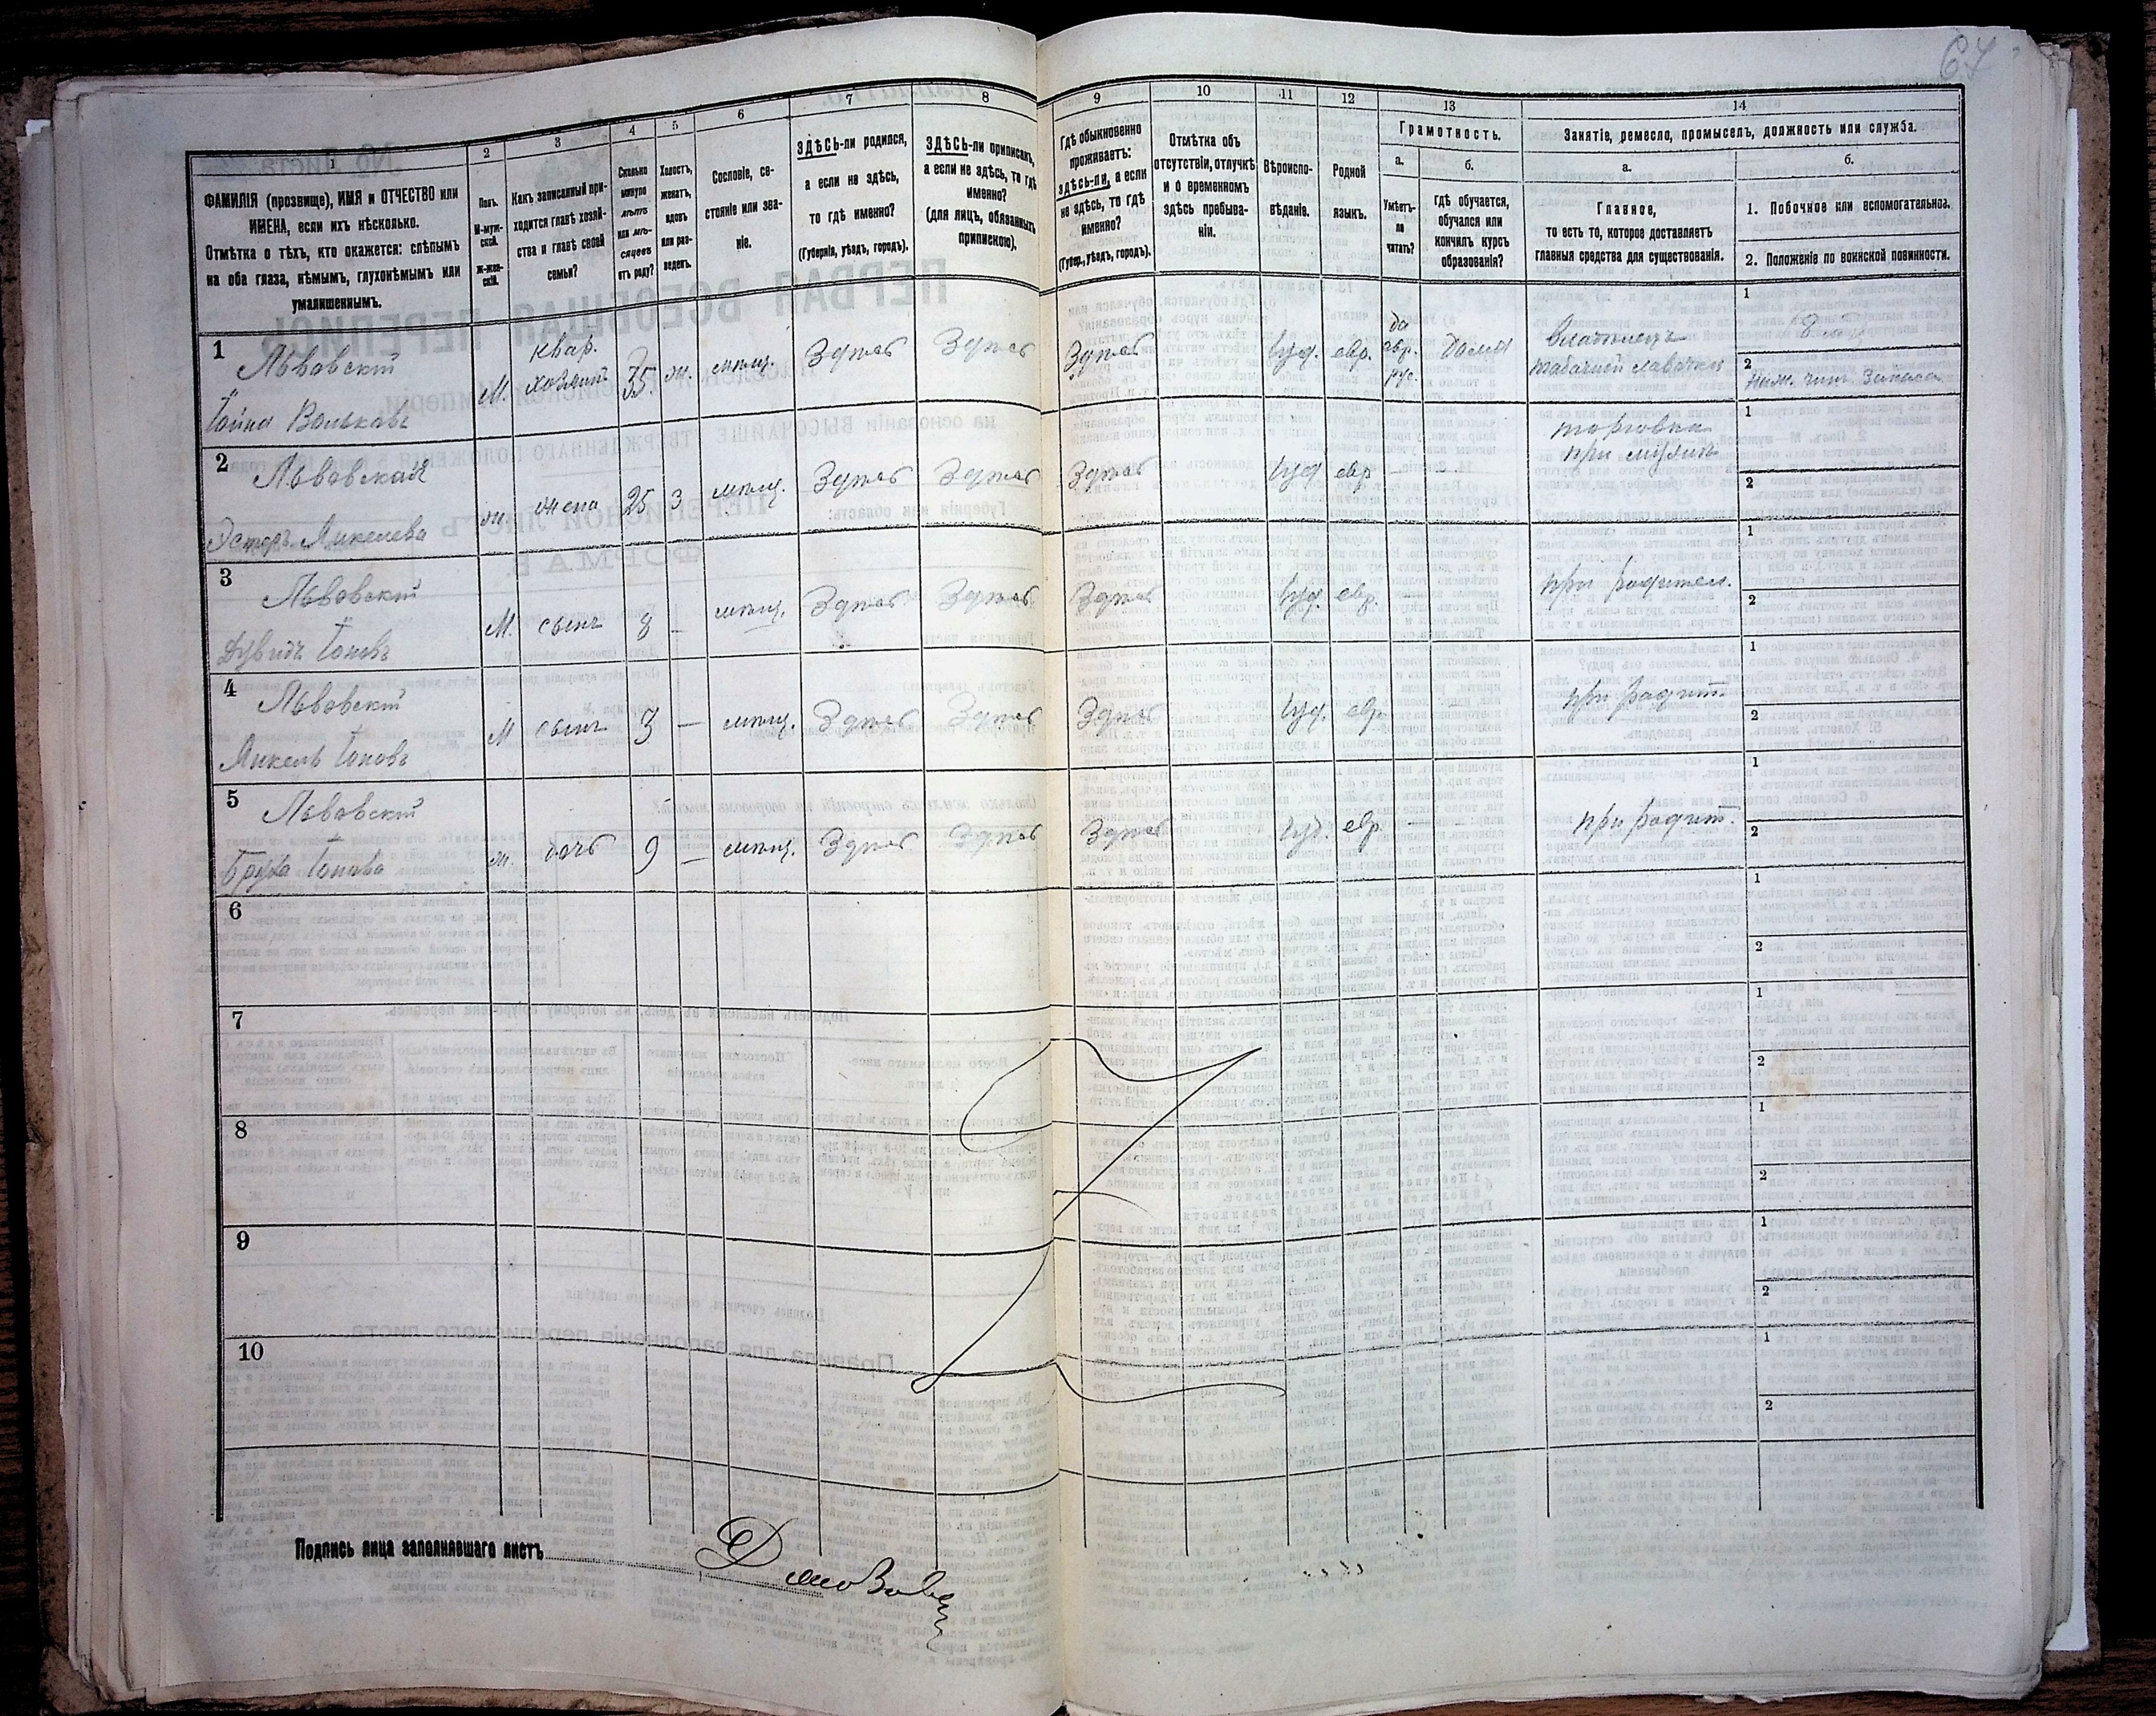 67
1
2
3
4
5
6
7
8
9
10
11
12
13
14
ФАМИЛІЯ (прозвище), ИМЯ и ОТЧЕСТВО или
ИМЕНА, если ихъ нѣсколько.
Отмѣтка о тѣхъ, кто окажется: слѣпымъ
на оба глаза, нѣмымъ, глухонѣмымъ или
умалишеннымъ.
Полъ.
М-муж-
ской.
Ж-жен-
скій.
Какъ записанный при-
ходится главѣ хозяй-
ства и главѣ своей
семьи?
Сколько
минуло
лѣтъ
или мѣ-
сяцевъ
отъ роду?
Холостъ,
женатъ,
вдовъ
или раз-
веденъ.
Сословіе, со-
стояніе или зва-
ніе.
ЗДѢСЬ-ли родился,
а если не здѣсь,
то гдѣ именно?
(Губернія, уѣздъ, городъ).
ЗДѢСЬ-ли приписанъ,
а если не здѣсь, то гдѣ
именно?
(для лицъ, обязанныхъ
припискою).
Гдѣ обыкновенно
проживаетъ:
здѣсь-ли, а если
не здѣсь, то гдѣ
именно?
(Губер., уѣздъ, городъ).
Отмѣтка объ
отсутствіи, отлучкѣ
и о временномъ
здѣсь пребыва-
ніи.
Вѣроиспо-
вѣданіе.
Родной
языкъ.
Грамотность.
а.
Умѣетъ-
ли
читать?
б.
гдѣ обучается,
обучался или
кончилъ курсъ
образованія?
Занятіе, ремесло, промыселъ, должность или служба.
а.
Главное,
то есть то, которое доставляетъ
главныя средства для существованія.
б.
1. Побочное или вспомогательное.
2. Положеніе по воинской повинности.
1
Львовскій
М.
квар.
хозяинъ
35.
ж.
мѣщ.
Здѣсь
Здѣсь
Здѣсь
Іуд.
евр.
да
евр.
рус.
дома
владѣлецъ
табачной лавочки
1
2
Ниж. чинъ запаса
2
Львовская
Эстеръ
ж.
жена
25
З
мѣщ.
Здѣсь
Здѣсь
Здѣсь
Іуд
евр
—
торговка
при мужѣ
1
2
3
Львовскій
М.
сынъ
8
—
мѣщ.
Здѣсь
Здѣсь
Здѣсь
Іуд.
евр.
—
при родител.
1
2
4
Львовскій
М
сынъ
3
—
мѣщ.
Здѣсь
Здѣсь
Здѣсь
Іуд.
евр.
при родит.
1
2
5
Львовскій
ж.
дочь
9
—
мѣщ.
Здѣсь
Здѣсь
Здѣсь
Іуд.
евр.
—
—
при родит.
1
2
6
1
2
7
1
2
8
1
2
9
1
2
10
1
2
Подпись лица заполнявшаго листъ